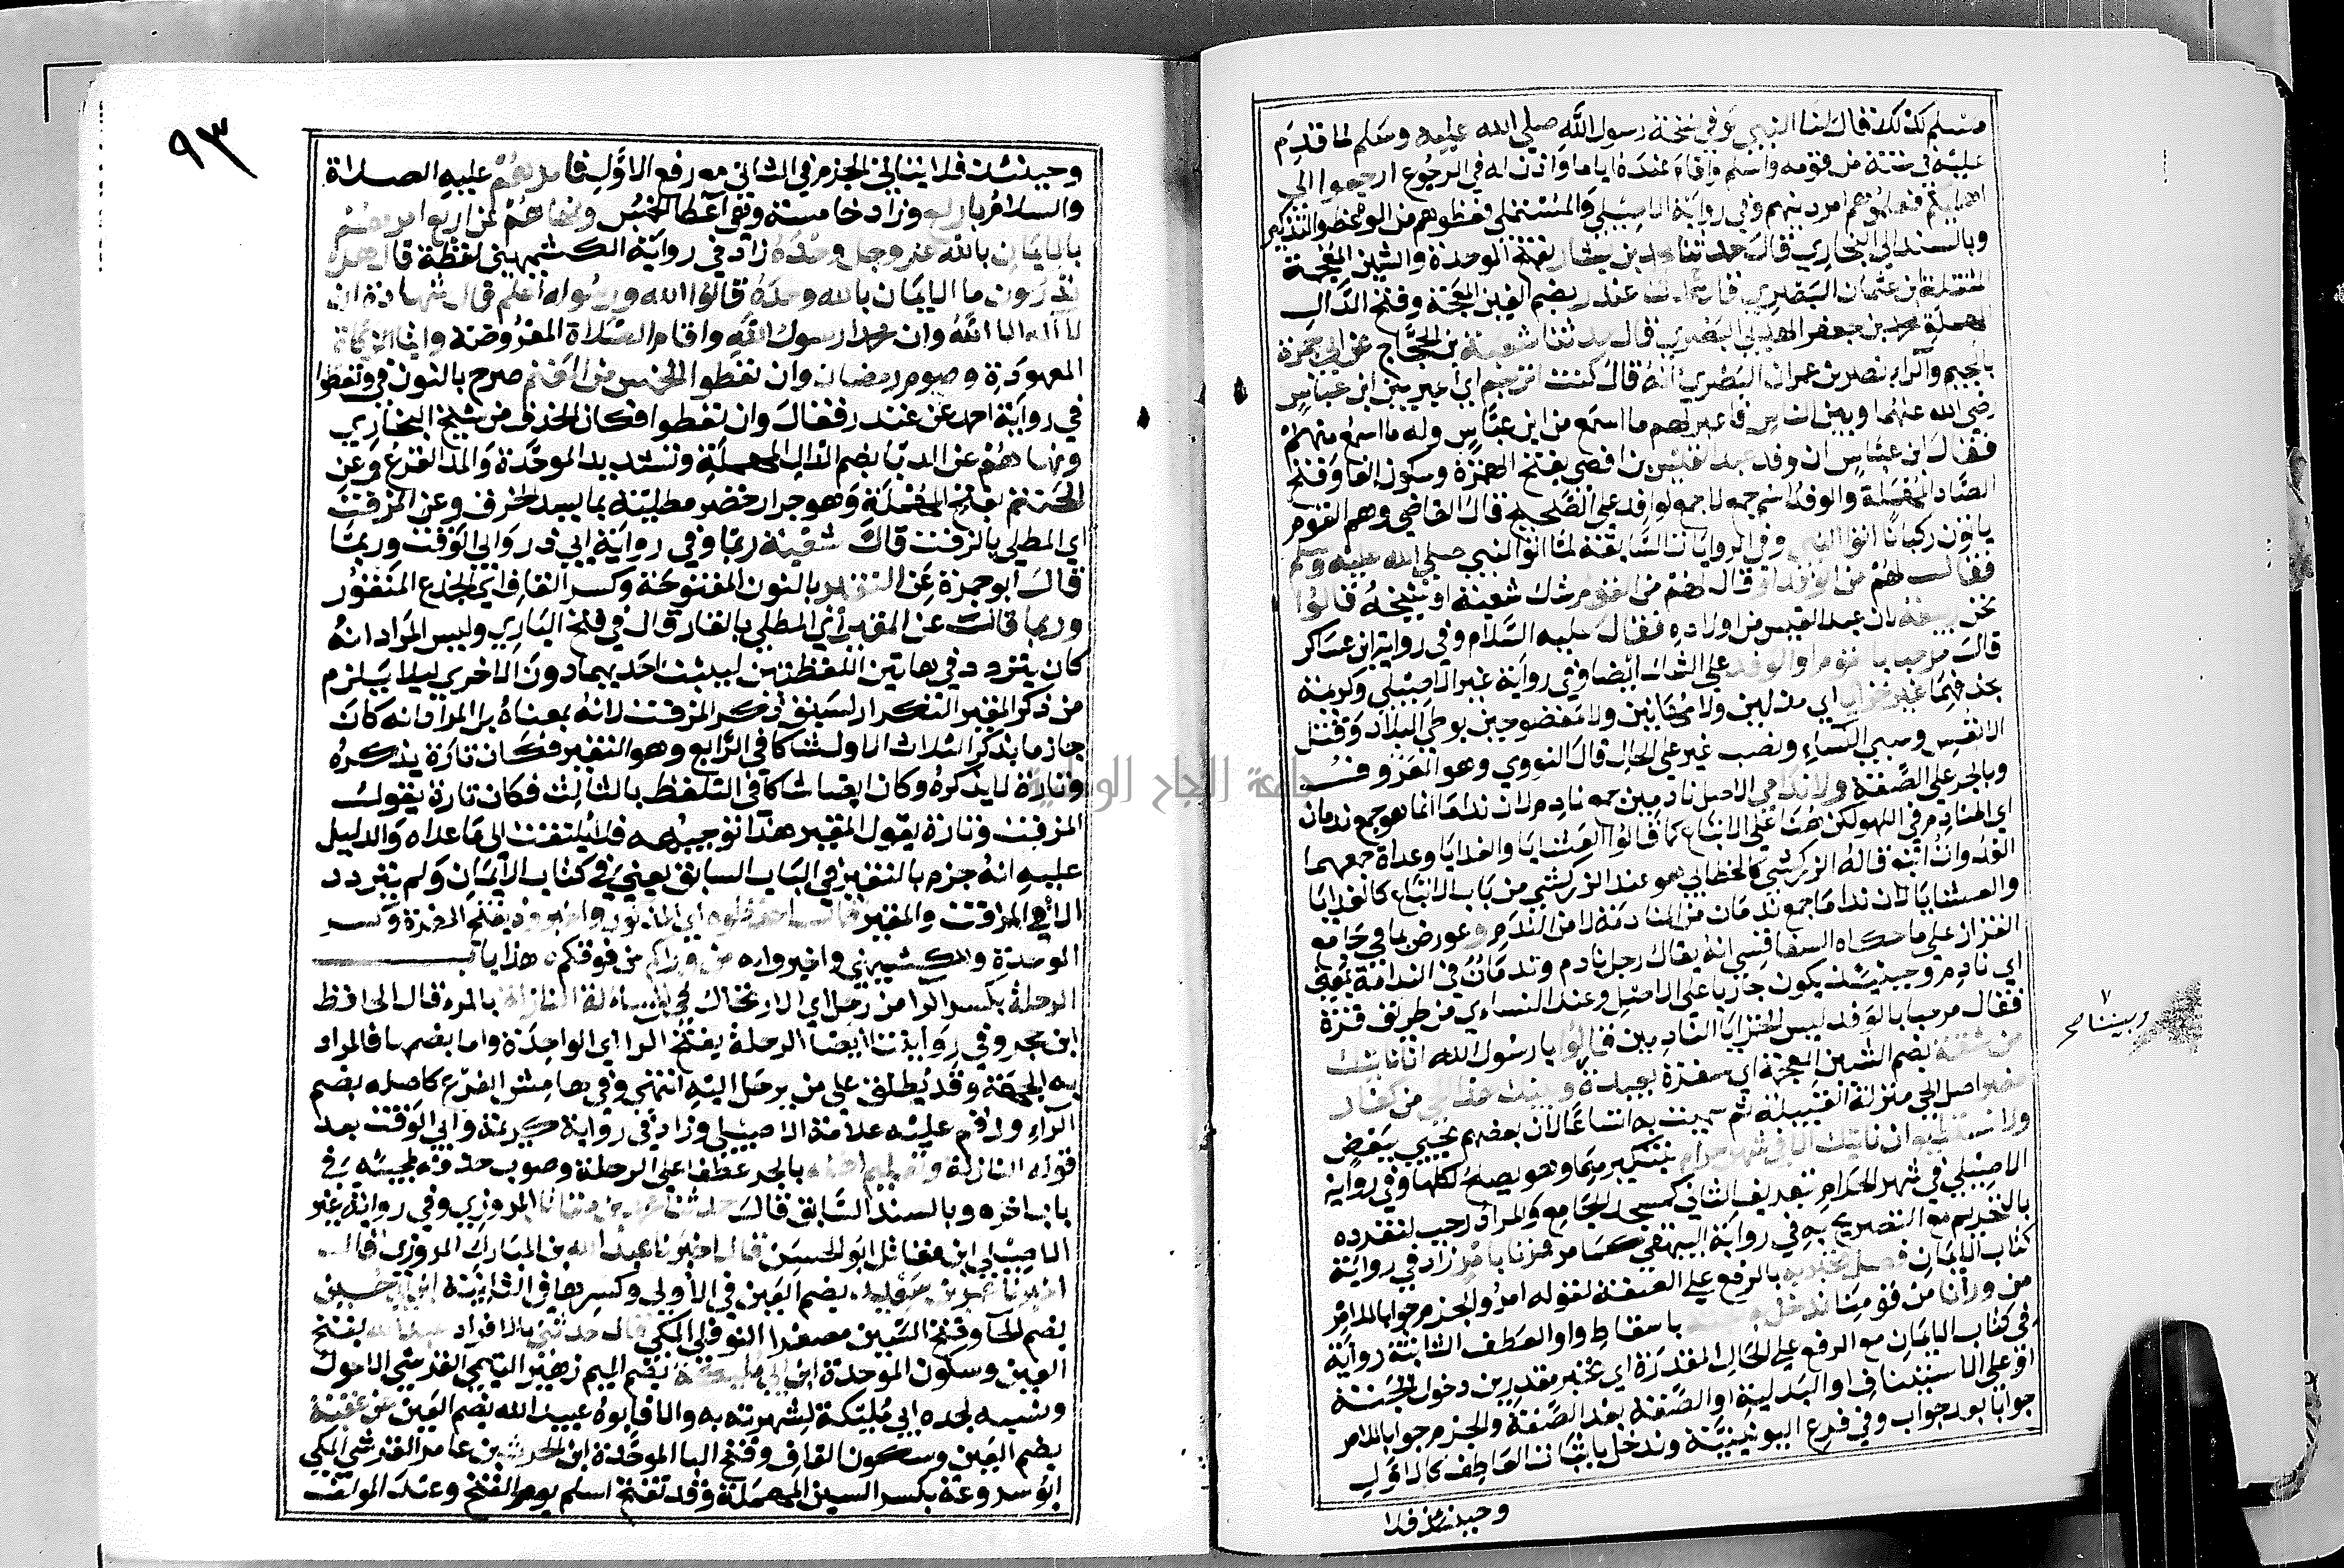 مسلم كذلك قال لنا النبي وفي نسخة رسول الله صلى الله عليه وسلم لما قدم
عليه في ستة من قومه واسلم واقام عنده اياما واذن له في الرجوع ارجعوا الى
اهليكم فعلموهم امر دينهم وفي رواية الاصيلي والمستملي فعظوهم من الوعظ والتذكير
وبالسند الى البخاري قال حدثنا محمد بن بشار بفتح الموحدة والشين المعجمة
المثقلة ابن عثمان البصري قال حدثنا غندر بضم الغين المعجمة وفتح الدال
المهملة محمد بن جعفر الهذلي البصري قال حدثنا شعبة بن الحجاج عن ابي جمرة
بالجيم والراء نصر بن عمران البصري انه قال كنت اترجم اي اعبر بين ابن عباس
رضي الله عنهما وبين الناس فاعبر لهم ما اسمع من ابن عباس وله ما اسمع منهم
فقال ابن عباس ان وفد عبد القيس بن افصى بفتح الهمزة وسكون الفا وفتح
الصاد المهملة والوفد اسم جمع لا جمع لوافد على الصحيح قال القاضي وهم القوم
ياتون ركبانا اتوا النبي وفي الروايات السابقة لما اتوا النبي صلى الله عليه وسلم
فقال لهم من الوفد او قال لهم من القوم شك شعبة او شيخه قالوا
نحن ربيعة لان عبد القيس من اولاده فقال عليه السلام وفي رواية ابن عساكر
قال مرحبا بالقوم او الوفد على الشك ايضا وفي رواية غير الاصيلي وكريمة
بحذفهما غير خزايا اي مذلين ولا مهانين ولا مفضوحين بوطي البلاد وقتل
الانفس وسبي النساء ونصب غير على الحال قال النووي وهو المعروف
وبالجر على الصفة ولا ندامى الاصل نادمين جمع نادم لان ندامى انما هو جمع ندمان
اي المنادم في اللهو لكن هنا على الاتباع كما قالوا العشايا والغدايا وغداة جمعها
الغدوات انتهى قاله الزركشي كالخطابي هو عند الزركشي من باب الاتباع كالغدايا
والعشايا لان نداما جمع ندمان من المنادمة لا من الندم وعورض بما في جامع
القزاز على ما حكاه السفاقسي انه يقال رجل نادم وندمان في الندامة بمعنى
اي نادم وحينئذ يكون جاريا على الاصل وعند النساءي من طريق قرة
فقال مرحبا بالوفد ليس الخزايا النادمين قالوا يا رسول الله انا ناتيك
من شقة بضم الشين المعجمة اي سفرة بعيدة وبيننا وبينك هذا الحي من كفار
مضر اصل الحي منزلة القبيلة ثم سميت به اتساعا لان بعضهم يحيي ببعض
ولا نستطيع ان ناتيك الا في شهر حرام بتنكيرهما وهو يصلح لكلها وفي رواية
الاصيلي في شهر الحرام بتعريف الثاني كمسجد الجامع والمراد رجب لتفرده
بالتحريم مع التصريح به في رواية البيهقي كما مر فمرنا بامر زاد في رواية
كتاب الايمان فصل نخبر به بالرفع على الصفة لقوله امر والجزم جوابا للامر
من وراءنا من قومنا ندخل به الجنة باسقاط واو العطف الثابتة رواية
في كتاب الايمان مع الرفع على الحال المقدرة اي نخبر مقدرين دخول الجنة
او على الاستيناف او البدلية او الصفة بعد الصفة والجزم جوابا للامر
جوابا بعد جواب وفي فرع اليونينية وندخل باثبات العاطف كالاول
وحينئذ فلا
وبيننا صح
٩٣
وحينئذ فلا يتاتى الجزم في الثاني مع رفع الاول فامرهم عليه الصلاة
والسلام باربع وزاد خامسة وهي اعطا الخمس ونهاهم عن اربع امرهم
بالايمان بالله عز وجل وحده زاد في رواية الكشميهني لفظة قال هل
تدرون ما الايمان بالله وحده قالوا الله ورسوله اعلم قال شهادة ان
لا اله الا الله وان محمدا رسول الله واقام الصلاة المفروضة وايتا الزكاة
المعهودة وصوم رمضان وان تعطوا الخمس من المغنم صرح بالنون في وتعطوا
في رواية احمد عن غندر فقال وان تعطوا فكان الحذف من شيخ البخاري
ونهاهم عن الدبا بضم الدال المهملة وتشديد الموحدة والمد القرع وعن
الحنتم بفتح المهملة وهو جرار خضر مطلية بما يسد الخزف وعن المزفت
اي المطلي بالزفت قال شعبة ربما وفي رواية ابي ذر وابي الوقت وربما
قال ابو جمرة عن النقير بالنون المفتوحة وكسر القاف اي الجذع المنقور
وربما قال عن المقير اي المطلي بالقار قال في فتح الباري وليس المراد انه
كان يتردد في هاتين اللفظتين ليثبت احديهما دون الاخرى ليلا يلزم
من ذكر المقير التكرار لسبق ذكر المزفت لانه بمعناه بل المراد انه كان
جازما بذكر الثلاث الاول شاكا في الرابع وهو النقير فكان تارة يذكره
وتارة لا يذكره وكان ايضا شاكا في التلفظ بالثالث فكان تارة يقول
المزفت وتارة يقول المقير هذا توجيهه فلا يلتفت الى ما عداه والدليل
عليه انه جزم بالنقير في الباب السابق يعني في كتاب الايمان ولم يتردد
الا في المزفت والمقير قال احفظوه اي المذكور واخبروه بفتح الهمزة وكسر
الموحدة وللكشميهني واخبروا به من وراكم من قومكم هذا باب
الرحلة بكسر الرا من رحل اي الارتحال في المسالة النازلة بالمرء قال الحافظ
ابن حجر وفي روايتنا ايضا الرحلة بفتح الرا اي الواحدة واما بضمها فالمراد
به الجهة وقد يطلق على من يرحل اليه انتهى وفي هامش الفرع كاصله بضم
الراء ورقم عليه علامة الاصيلي وزاد في رواية كريمة وابي الوقت بعد
قوله النازلة وتعليم اهله بالجر عطف على الرحلة وصوب حذفه لمجيئه في
باب اخره وبالسند السابق قال حدثنا محمد بن مقاتل المروزي وفي رواية غير
الاصيلي ابن مقاتل ابو الحسن قال اخبرنا عبد الله بن المبارك المروزي قال
اخبرنا عمر بن سعيد بضم العين في الاولى وكسرها في الثانية ابن ابي حسين
بضم الحا وفتح السين مصغرا النوفلي المكي قال حدثني بالافراد عبد الله بفتح
العين وسكون الموحدة ابن ابي مليكة بضم الميم زهير التيمي القرشي الاحول
ونسبه لجده ابي مليكة لشهرته به والا فابوه عبيد الله بضم العين عن عقبة
بضم العين وسكون القاف وفتح البا الموحدة ابن الحرث بن عامر القرشي المكي
ابو سروعة بكسر السين المهملة وقد تفتح اسلم يوم الفتح وعند المولف